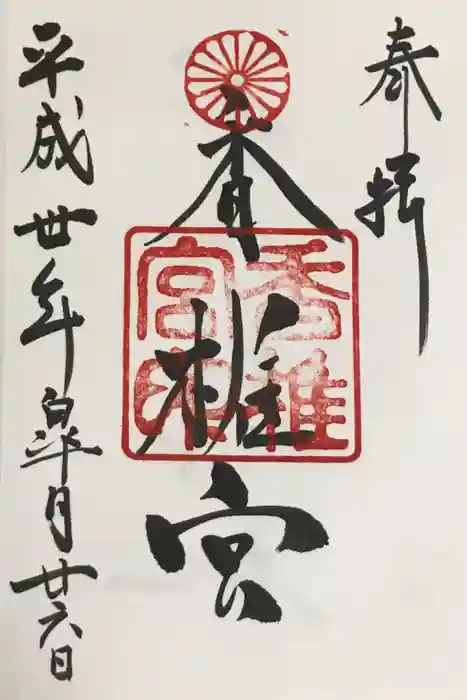 奉拝
香椎宮
香椎宮印
平成丗年皐月廿六日